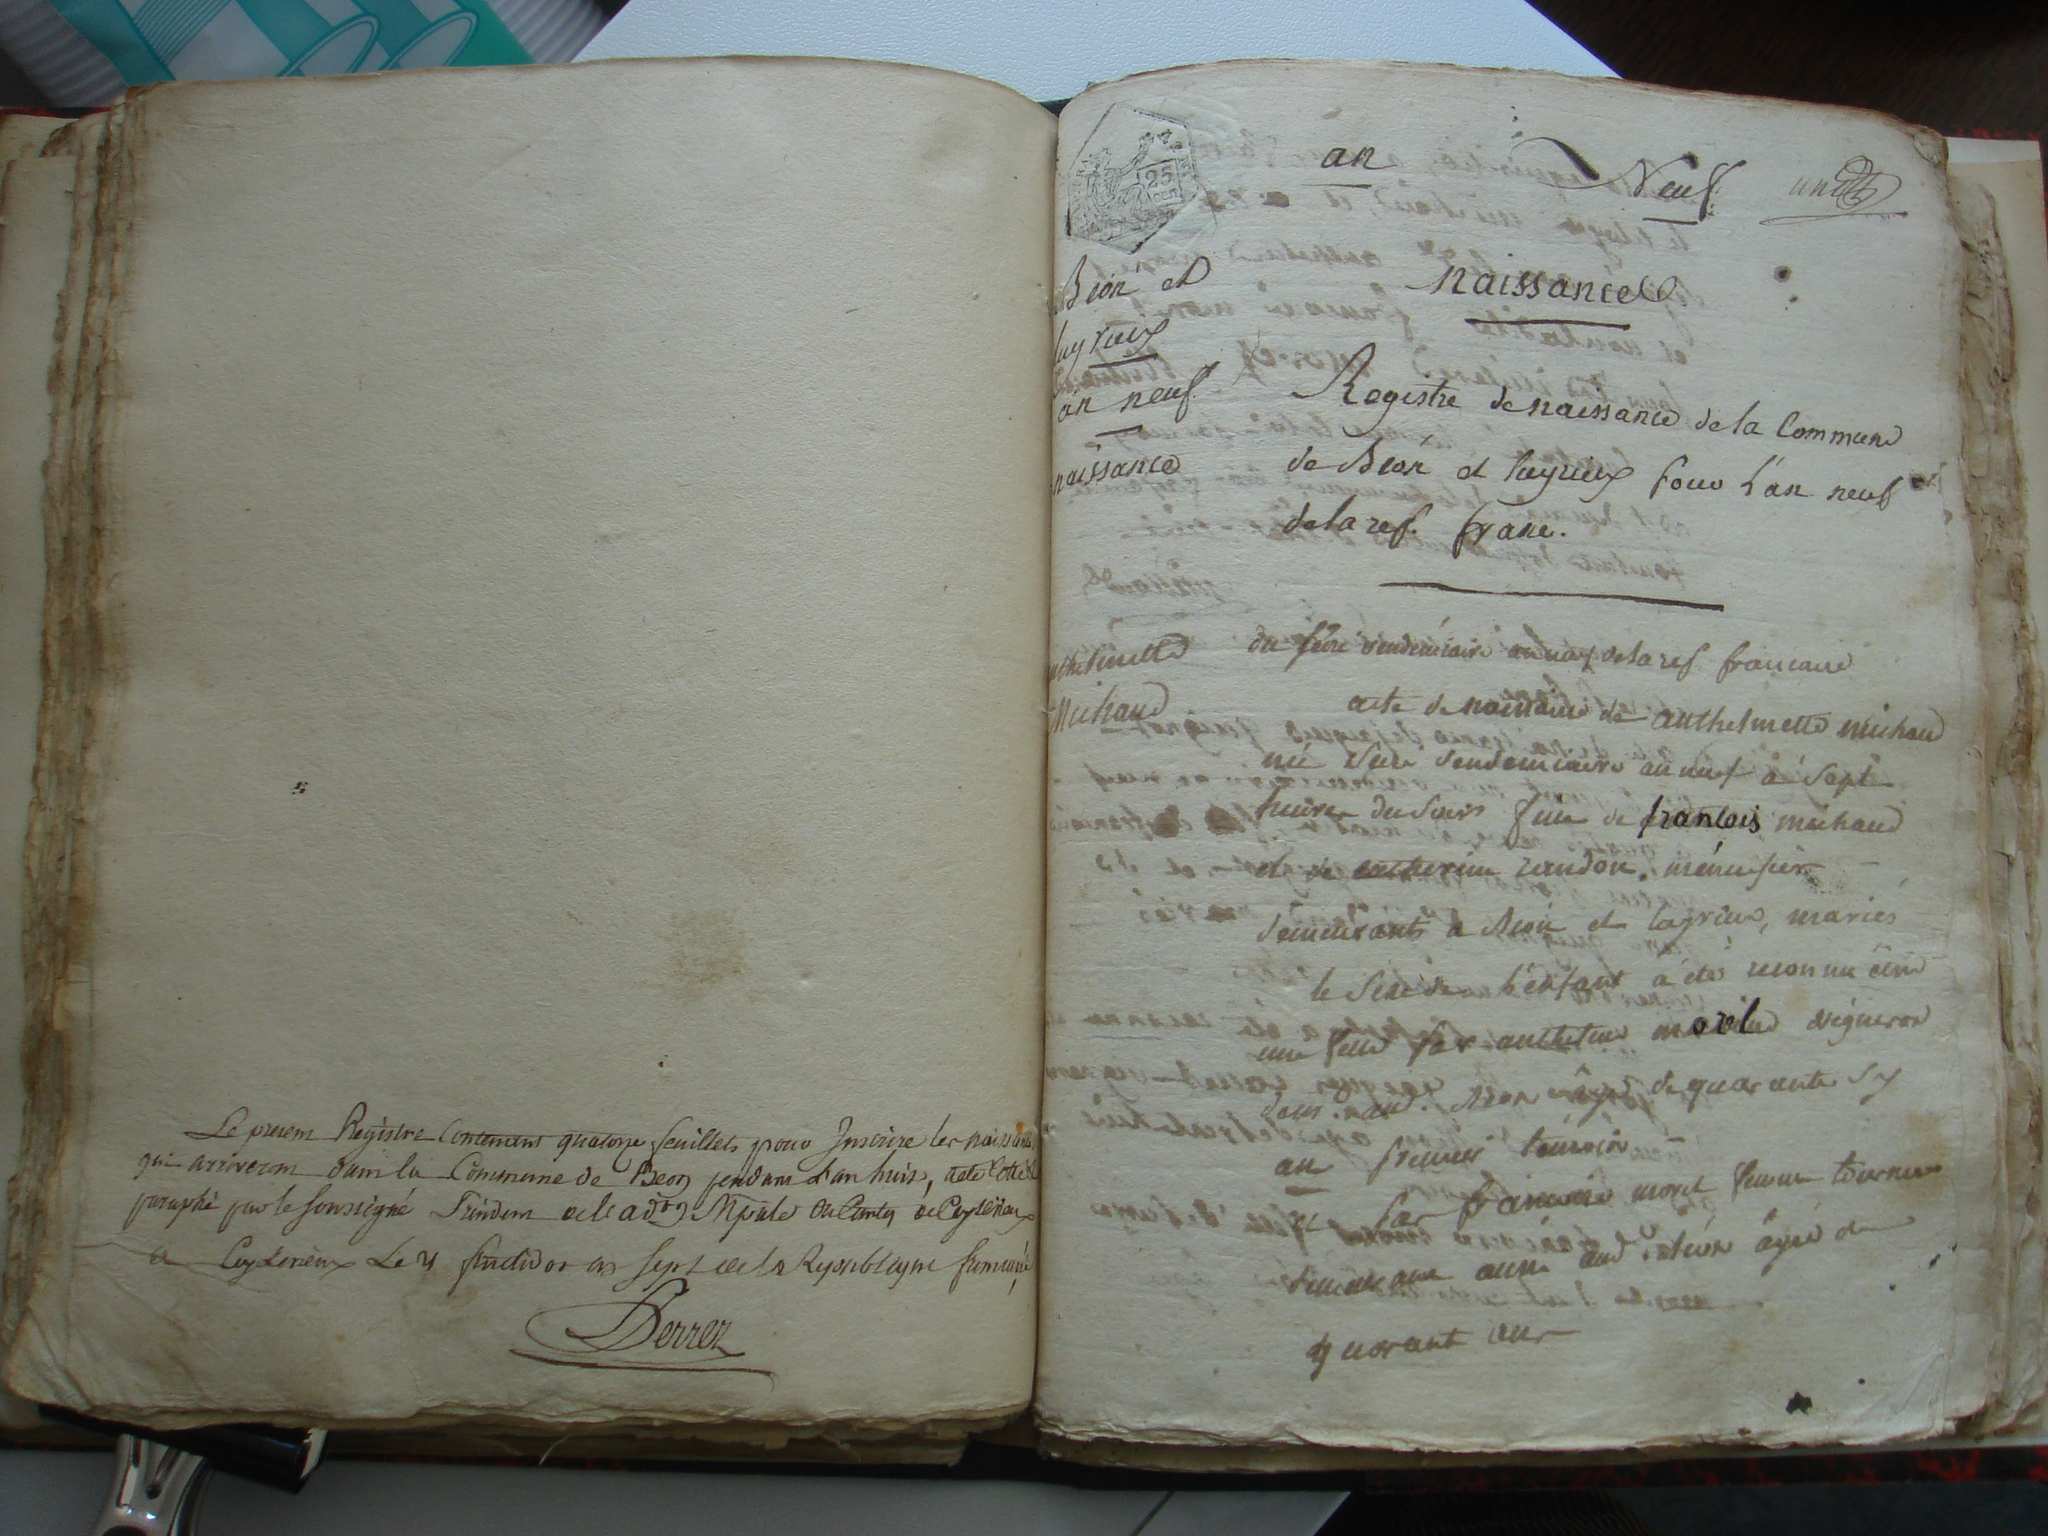 Le presen Registre Contenant quatorze feuillets pour Inscrire les naissances
qui arriveron dans la Commune de Beon pendans L'an huis, a eté Cotté &
paraphé par le Soussigné Présidem de l'adon Mpale du Canton de Ceyzerieux
a Ceyzerieux Le 21 fructidor an sept de la Republique francaise
Perrer
an Neuf
25
Beon et
luyrieux
an neuf
naissance
naissances
Registre de naissance de la Commune
de Béon et luyrieux pour l'an neuf
de la rep. franc.
anthelmette
Michaud
du seize vendemiaire an neuf de la rep francaise
acte de naissance de anthelmette michaud
née vendemiaire an neuf à sept
heures du soir fille de francois michaud
et de catherine
demeurants a Béon et luyrieux, mariés
le sexe de l'enfant à été reconnu être
une fille par anthelme morel vigneron
Béon âgé de quarante
an premier temoin
par francoise morel femme
demeurant aussi aud. béon âgée de
quarant ans